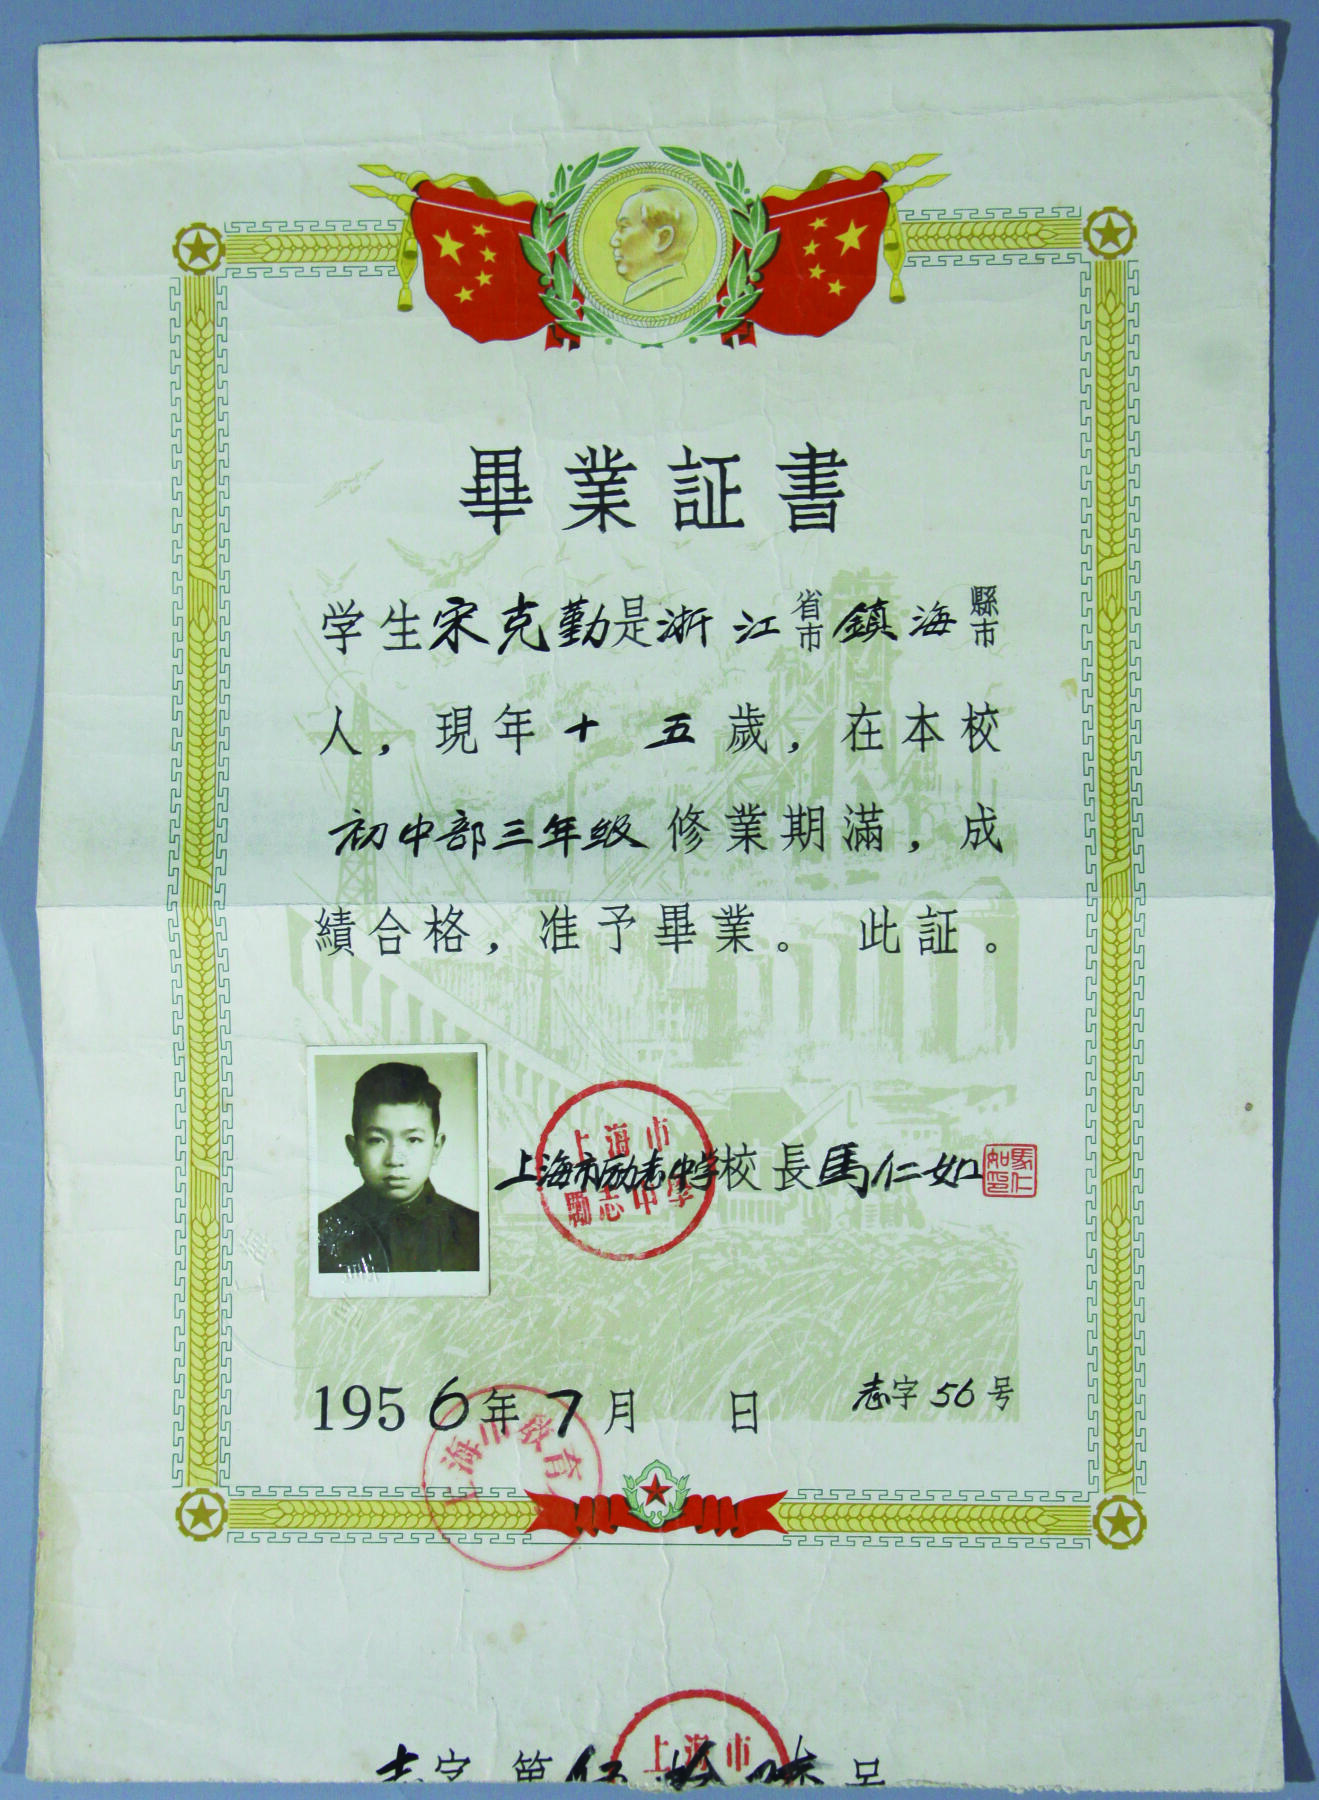 畢業証書
学生宋克勤是浙江省市鎮海縣市
人，現年十五歲，在本校
初中部三年级修業期滿，成
績合格，准予畢業。 此証。
上海市励志中学校長馬仁如
馬仁如印
上海市
勵志中學
1956年7月 日
志字56号
上海市教育
上海市
志字第伍拾陆号